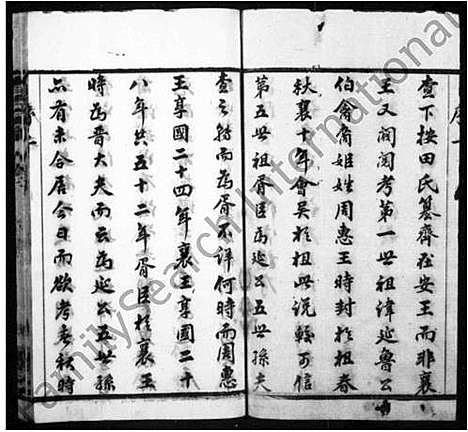 查下按田氏篡齊在安王而非襄
王又閱閱考第一世祖諱延魯公
伯禽裔姬姓周惠王時封於祖春
秋襄十年會吳於柤此說較可信
第五世祖胥臣為延公五世孫夫
查之轉而為胥不詳何時而周惠
王享國二十四年襄王享國三十
八年共五十二年胥臣於襄王
時為晉大夫而云為延公五世孫
亦有未合居今日而欲考春秋時
FamilySearch International